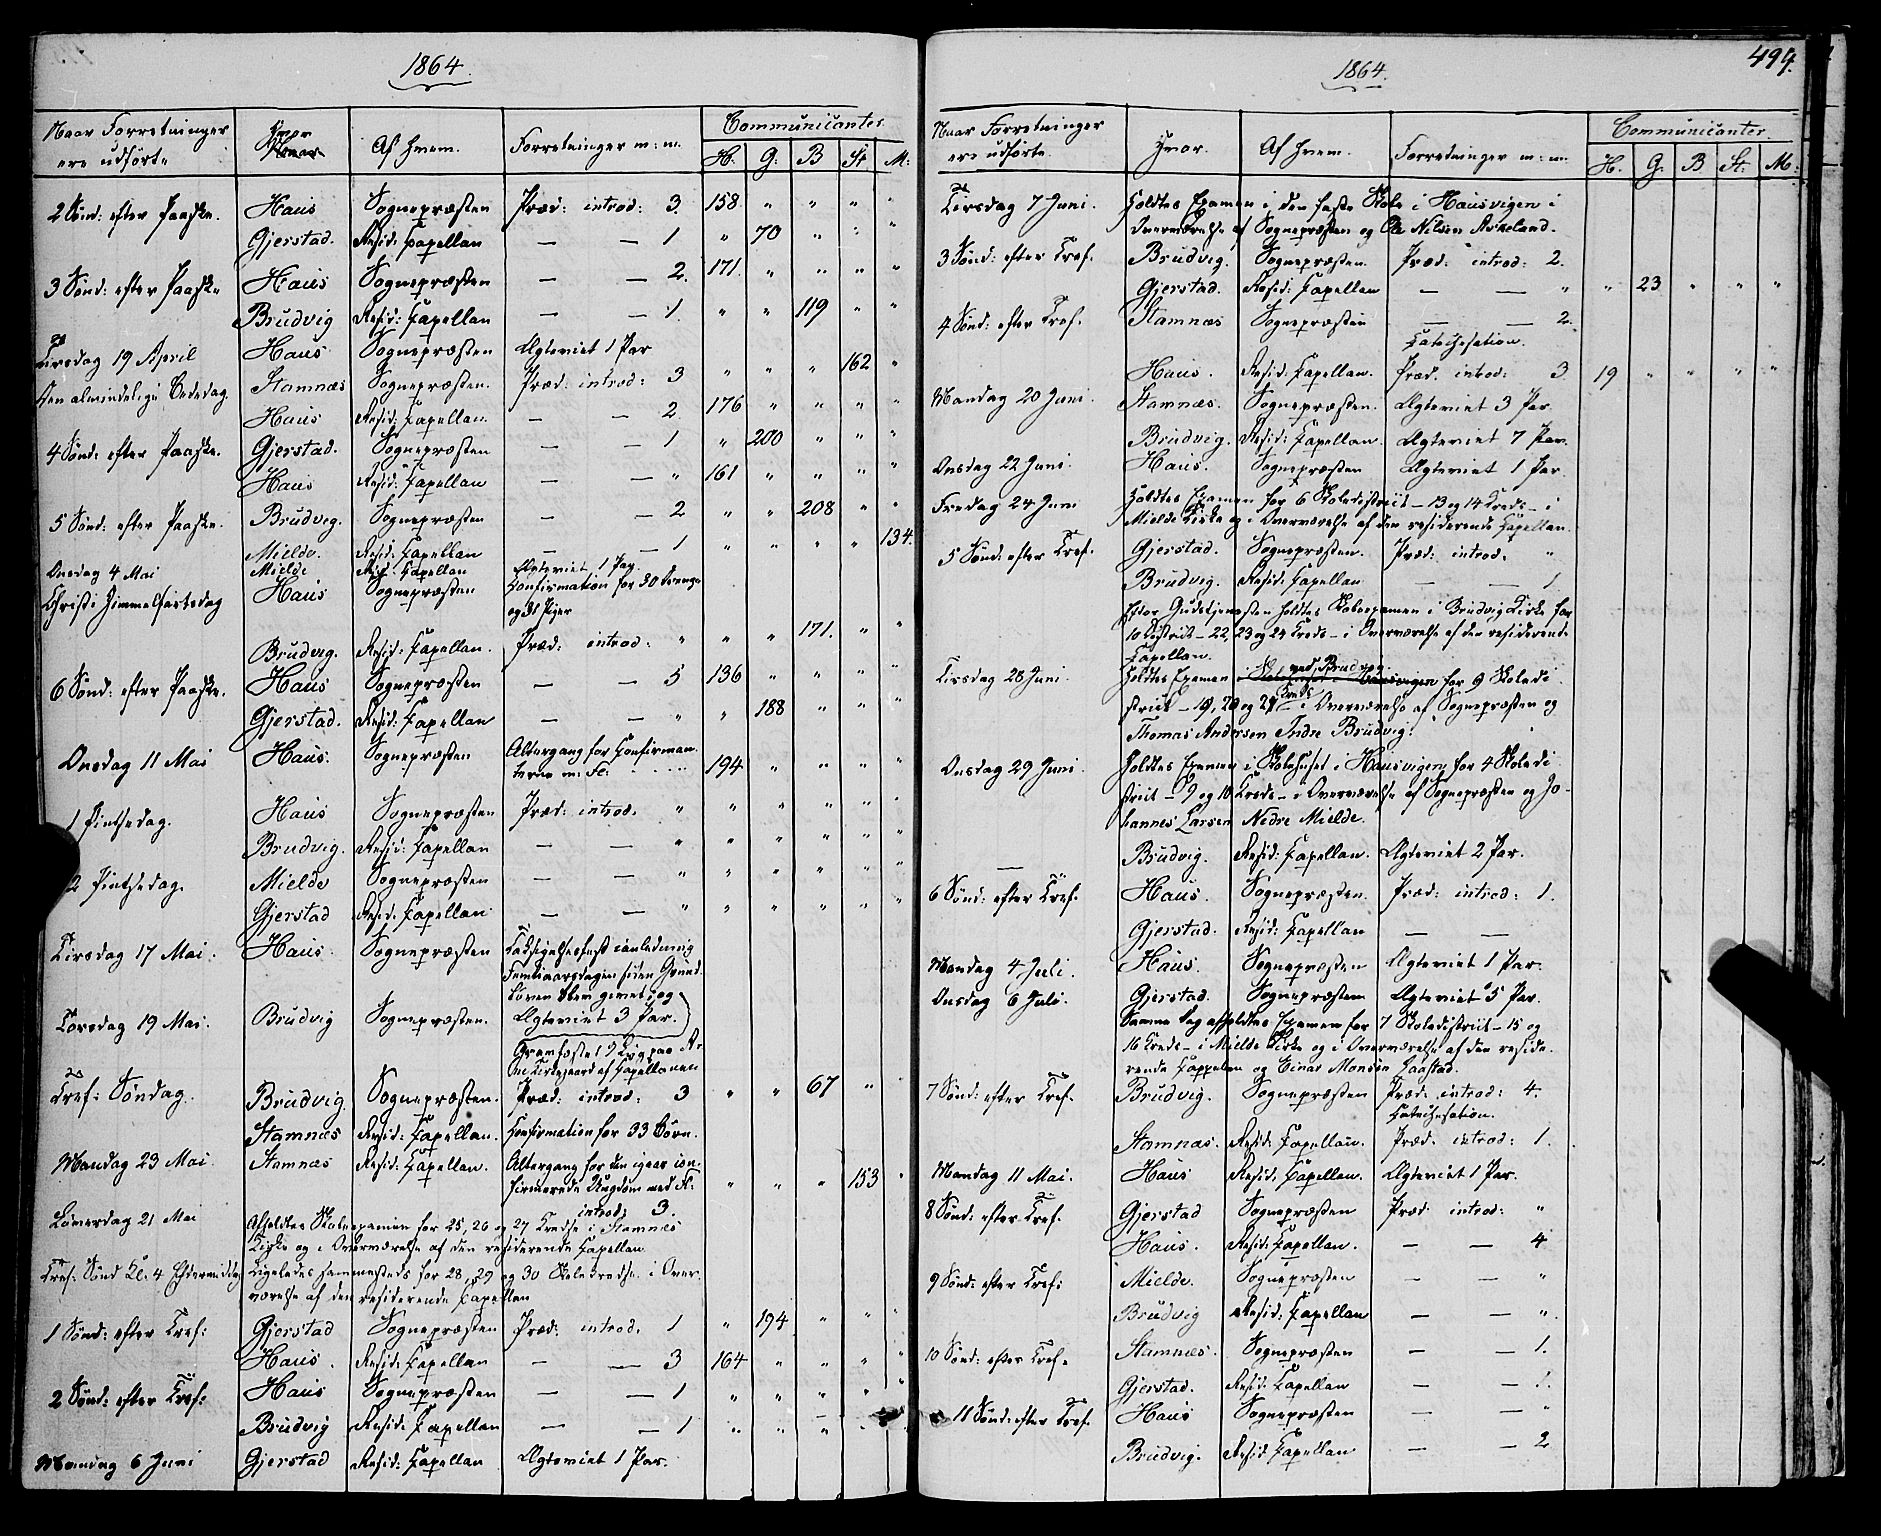 1864.
Naar Forretninger ere udførte | Hvor | Af hvem. | Forretninger m: m: | Communicantes. H. G: B St. M:
2 Sønd: efter Paaske. Haus Sognepræsten Præd: introd: 3. 158 " " " "
Gjerstad. Resid: Capellan — — 1 " 70 " " "
3 Sønd: efter Paaske Haus Sognepræsten — — 2. 171. " " " "
Brudvig Resid: Capellan — — 1. " " 119 " "
Tirsdag 19 April Haus Sognepræsten Ægteviet 1 Par
Den almindelige Bededag Stamnæs Sognepræsten. Præd: introd: 3 " " " 162 "
Haus Resid: Capellan. — — 2. 176 " " " "
4 Sønd: efter Paaske. Gjerstad. Sognepræsten — — 1 " 200 " " "
Haus Resid: Capellan — — " 161 " " " "
5 Sønd: efter Paaske. Brudvig. Sognepræsten — — 2 " " 208 " "
Mielde. Resid: Capellan — — 1 " " " " 134.
Onsdag 4 Mai Mielde Resid: Capellan Ægteviet 1 Par.
Christi Himmelfartsdag Haus Sognepræsten Confirmation for 30 Drenge
og 31 Piger
Brudvig. Resid: Capellan. Præd: introd: " " " 171. " "
6 Sønd: efter Paaske. Haus Sognepræsten — — 5 136 " " " "
Gjerstad. Resid: Capellan — — " " 188 " " "
Onsdag 11 Mai Haus. Sognepræsten Altergang for Confirman-
terne m: Fl: 194 " " " "
1 Pintsedag. Haus Sognepræsten Præd: introd. " " " " " "
Brudvig. Resid: Capellan — — " " " " " "
2 Pintsedag. Mielde Sognepræsten — — " " " " " "
Gjerstad Resid: Capellan — — " " " " " "
Tirsdag 17 Mai. Haus. Sognepræsten Taksigelsesfest i anledning
Femtiaarsdagen siden Grund-
loven blev givet, og
Torsdag 19 Mai. Brudvig Sognepræsten. Ægteviet 3 Par.
Gravfæstet 9 Lig paa
Kirkegaard af Capellanen
Tref: Søndag. Brudvig. Sognepræsten. Præd: introd: 3 " " 67 " "
Stamnæs Resid: Capellan. Confirmation for 33 Børn.
Mandag 23 Mai Stamnæs Resid: Capellan. Altergang for den igaar con-
firmerede Ungdom med Fl. " " " 153 "
introd: 3.
Lørerdag 21 Mai Afholdtes Skoleexamen for 25, 26 og 27 Kredse i Stamnæs
Kirke og i Overværelse af den residerende Capellan
Tref: Sønd Kl. 4 Eftermiddag Ligeledes sammesteds for 28, 29 og 30 Skolekredse i Over-
værelse af den residerende Capellan
1 Sønd: efter Tref: Gjerstad Sognepræsten Præd: introd. 1 " 194 " " "
Haus. Resid: Capellan — — 3 164 " " " "
2 Sønd: efter Tref: Haus Sognepræsten — — 1 " " " " "
Brudvig Resid: Capellan — — 1 " " " " "
Mandag 6 Juni Gjerstad Resid: Capellan Ægteviet 1 Par.
1864. 494.
Naar Forretninger ere udførte. | Hvor. | Af hvem. | Forretninger m: m: | Communicantes. H. G. B St: M:
Tirsdag 7 Juni. Holdtes Examen i den faste Skole i Hausvigen i
Overværelse af Sognepræsten og Ole Nilsen Arkeland.
3 Sønd: efter Tref. Brudvig. Sognepræsten. Præd: introd: 2.
Gjerstad. Resid: Capellan — — " " 23 " " "
4 Sønd: efter Tref. Stamnæs Sognepræsten — — 2.
Catechesation.
Haus. Resid: Capellan. Præd. introd: 3 19 " " " "
Mandag 20 Juni. Stamnæs. Sognepræsten. Ægteviet 3 Par
Brudvig. Resid: Capellan. Ægteviet 7 Par.
Onsdag 22 Juni. Haus. Sognepræsten Ægteviet 1 Par
Fredag 24 Juni Holdtes Examen for 6 Skoledistrict – 13 og 14 Kreds – i
Mielde Kirke og i Overværelse af den residerende Capellan.
5 Sønd: efter Tref. Gjerstad. Sognepræsten. Præd: introd. "
Brudvig. Resid: Capellan — — 1.
Efter Gudstjenesten holdtes Skoleexamen i Brudvig Kirke for
10 District – 22, 23 og 24 Kreds – i Overværelse af den residerende
Capellan.
Tirsdag 28 Juni. Holdtes Examen ved Brudvig for 9 Skoledi-
strict – 19, 20 og 21 Kreds – i Overværelse af Sognepræsten og
Thomas Andersen Indre Brudvig.
Onsdag 29 Juni. Holdtes Examen i Skolehuset i Hausvigen for 4 Skoledi-
strict – 9 og 10 Kreds – i Overværelse af Sognepræsten og Jo-
hannes Larsen Nedre Mielde.
— Brudvig. Resid: Capellan. Ægteviet 2 Par.
6 Sønd: efter Tref. Haus. Sognepræsten. Præd: introd: 1.
Gjerstad. Resid: Capellan — —
Mandag 4 Juli. Haus. Sognepræsten Ægteviet 1 Par.
Onsdag 6 Juli. Gjerstad. Sognepræsten Ægteviet 5 Par.
Samme Dag afholdtes Examen for 7 Skoledistrict – 15 og
16 Kreds – i Mielde Kirke og i Overværelse af den reside-
rende Cappelan og Einar Monsen Haastad.
7 Sønd: efter Tref. Brudvig. Sognepræsten Præd: introd: 4.
Catechesation.
Stamnæs. Resid: Capellan. Præd: introd: 1.
Mandag 11 Mai. Haus Resid: Capellan. Ægteviet 1 Par.
8 Sønd: efter Tref. Gjerstad Sognepræsten Præd: introd: "
Haus. Resid: Capellan. — — 4
9 Sønd: efter Tref: Mielde. Sognepræsten — — "
Brudvig Resid: Capellan — — "
10 Sønd: efter Tref. Stamnæs. Sognepræsten — — 1.
Gjerstad. Resid: Capellan — — 1.
11 Sønd: efter Tref. Haus Sognepræsten — — "
Brudvig. Resid: Capellan — — 2